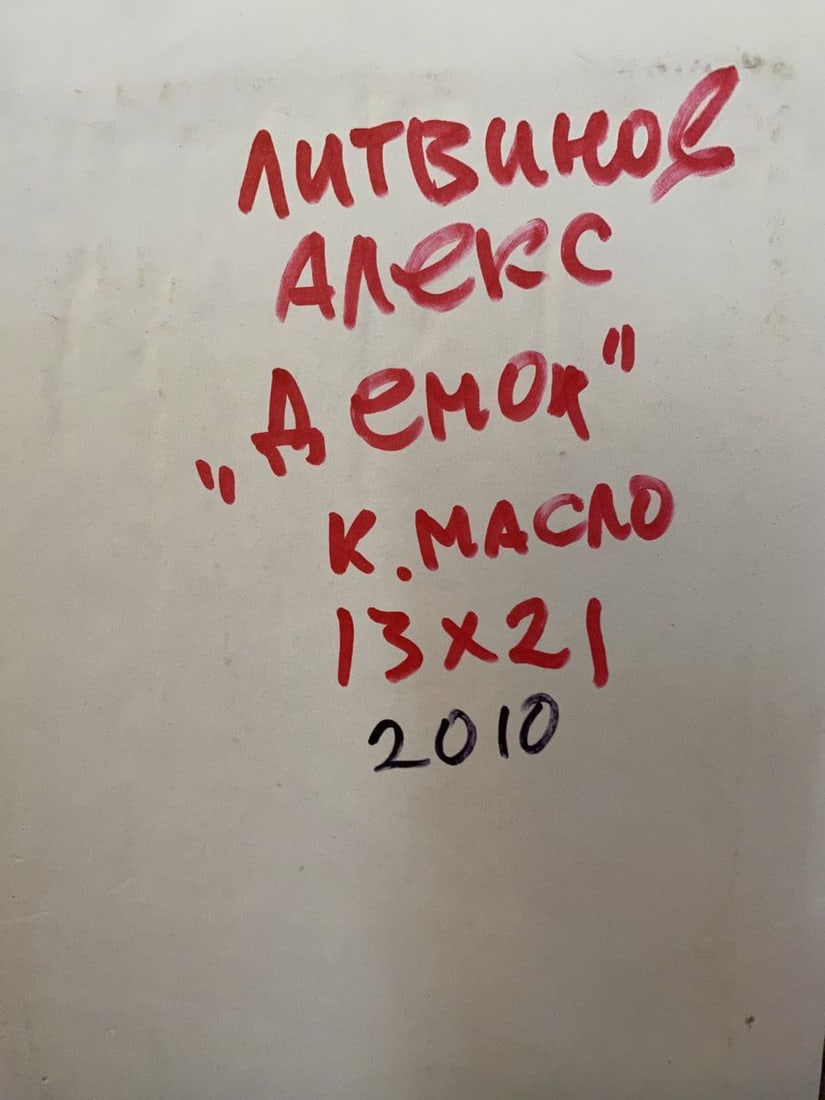 Литвинов
Алекс
„Демон"
К. МАСЛО
13x21
2010